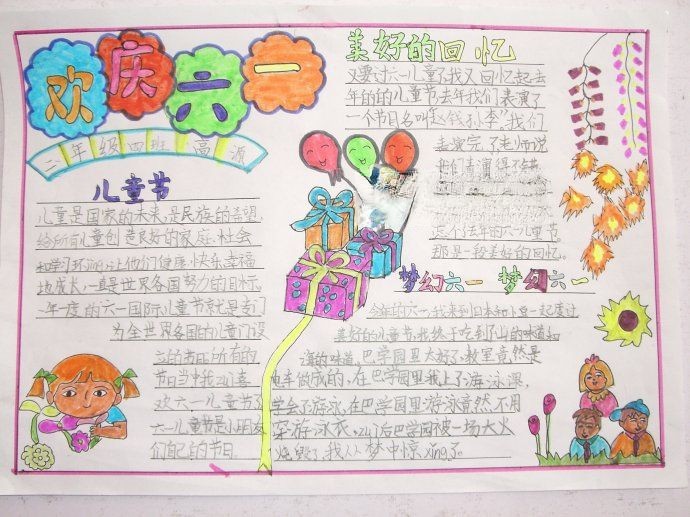 欢庆六一
二年级四班高源
儿童节
儿童是国家的未来,是民族的希望,
给所有儿童创造良好的家庭、社会
和学习环境,让他们健康、快乐、幸福
地成长,一直是世界各国努力的目标,
一年一度的六一国际儿童节就是专门
为全世界各国的儿童们设
立的节日,所有的
节日当中我们喜
欢六一儿童节了
六一儿童节是小朋友
们自己的节日。
美好的回忆
又要过六一儿童了,我又回忆起去
年的的儿童节去年我们表演了
一个节目名叫"赵钱孙李"。我们
表演完了老师说
他们表演得不错
这个去年的六一儿童节。
那是一段美好的回忆。
梦幻六一 梦幻六一
今年的六一我来到日本和
美好的儿童节,我终于吃到了山的味道和
海的味道,巴学园里太好了,教室竟然是
电车做成的,在巴学园里我上了游泳课,
学会了游泳,在巴学园里游泳竟然不用
穿游泳衣,zuì后巴学园被一场大火
烧毁了,我从梦中惊xǐng了。